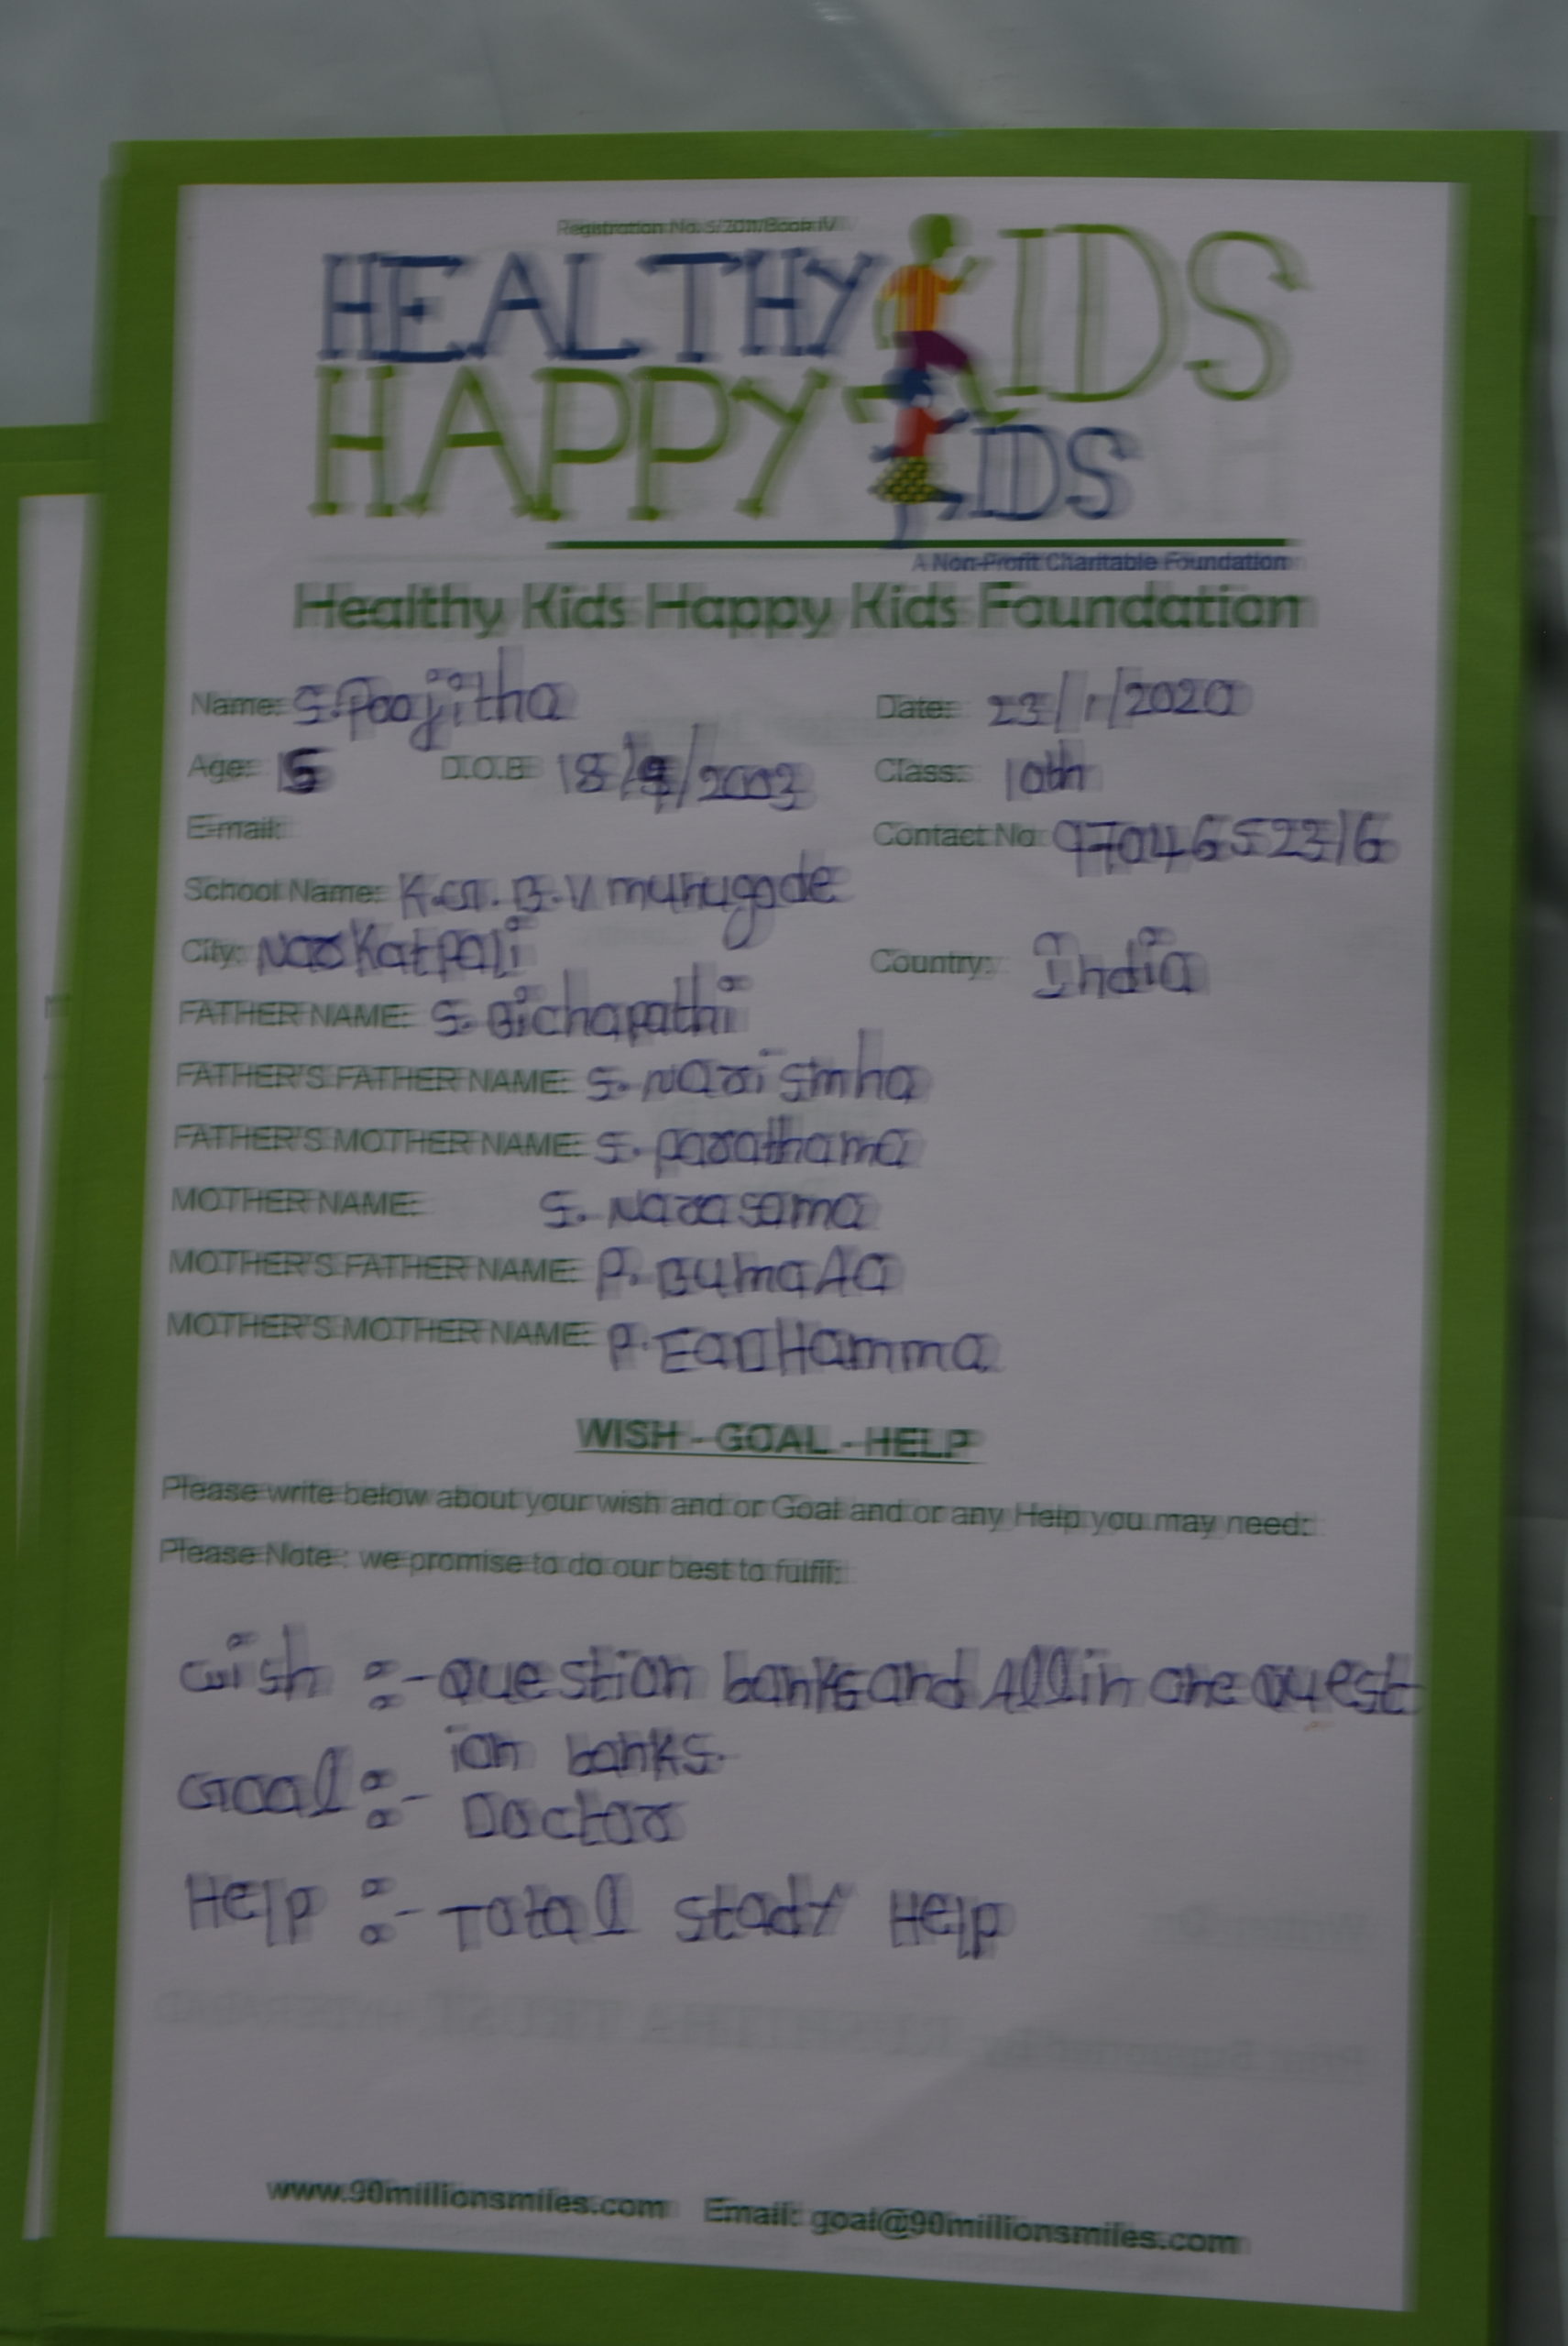 Registration No. 5/2011/Book IV
HEALTHY KIDS
HAPPY KIDS
A Non-Profit Charitable Foundation
Healthy Kids Happy Kids Foundation
Name: S.Poojitha Date: 23/1/2020
Age: 15 D.O.B 18/9/2003 Class: 10th
E-mail: Contact No: 9704652316
School Name: K.G.B.V murugade
City: NarKatPali Country: India
FATHER NAME: S. Bichapathi
FATHER'S FATHER NAME: S. Narisimha
FATHER'S MOTHER NAME: S. parathama
MOTHER NAME: S. Narasama
MOTHER'S FATHER NAME: P.
MOTHER'S MOTHER NAME: P.
WISH - GOAL - HELP
Please write below about your wish and or Goal and or any Help you may need:
Please Note : we promise to do our best to fulfil:
wish :- question banks and All in one quest
ion banks.
Goal :- Doctor
Help :- Total stady Help
www.90millionsmiles.com Email: goal@90millionsmiles.com